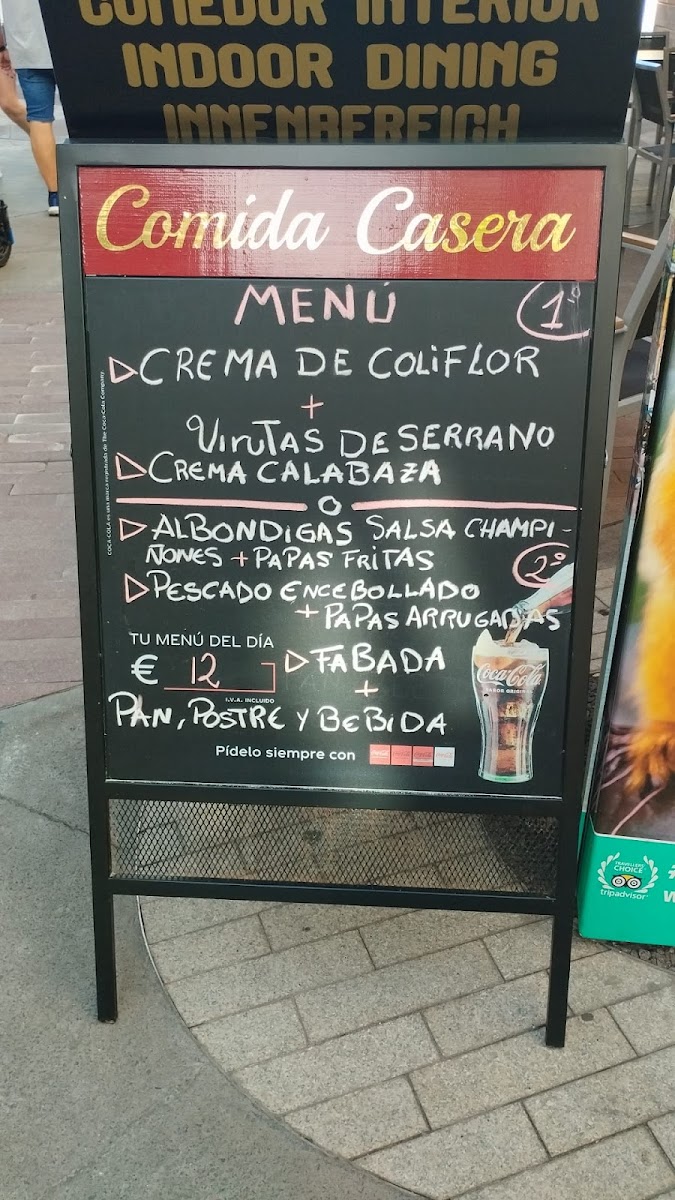 COMEDOR INTERIOR
INDOOR DINING
INNENBEREICH
Comida Casera
MENÚ
1º
CREMA DE COLIFLOR
+
VIRUTAS DE SERRANO
CREMA CALABAZA
O
ALBONDIGAS SALSA CHAMPI-
ÑONES + PAPAS FRITAS
2º
PESCADO ENCEBOLLADO
+ PAPAS ARRUGADAS
TU MENÚ DEL DÍA
€ 12
I.V.A. INCLUIDO
FABADA
+
PAN, POSTRE Y BEBIDA
Pídelo siempre con
Coca-Cola
SABOR ORIGINAL
COCA-COLA es una marca registrada de The Coca-Cola Company.
TRAVELLERS'
CHOICE
tripadvisor